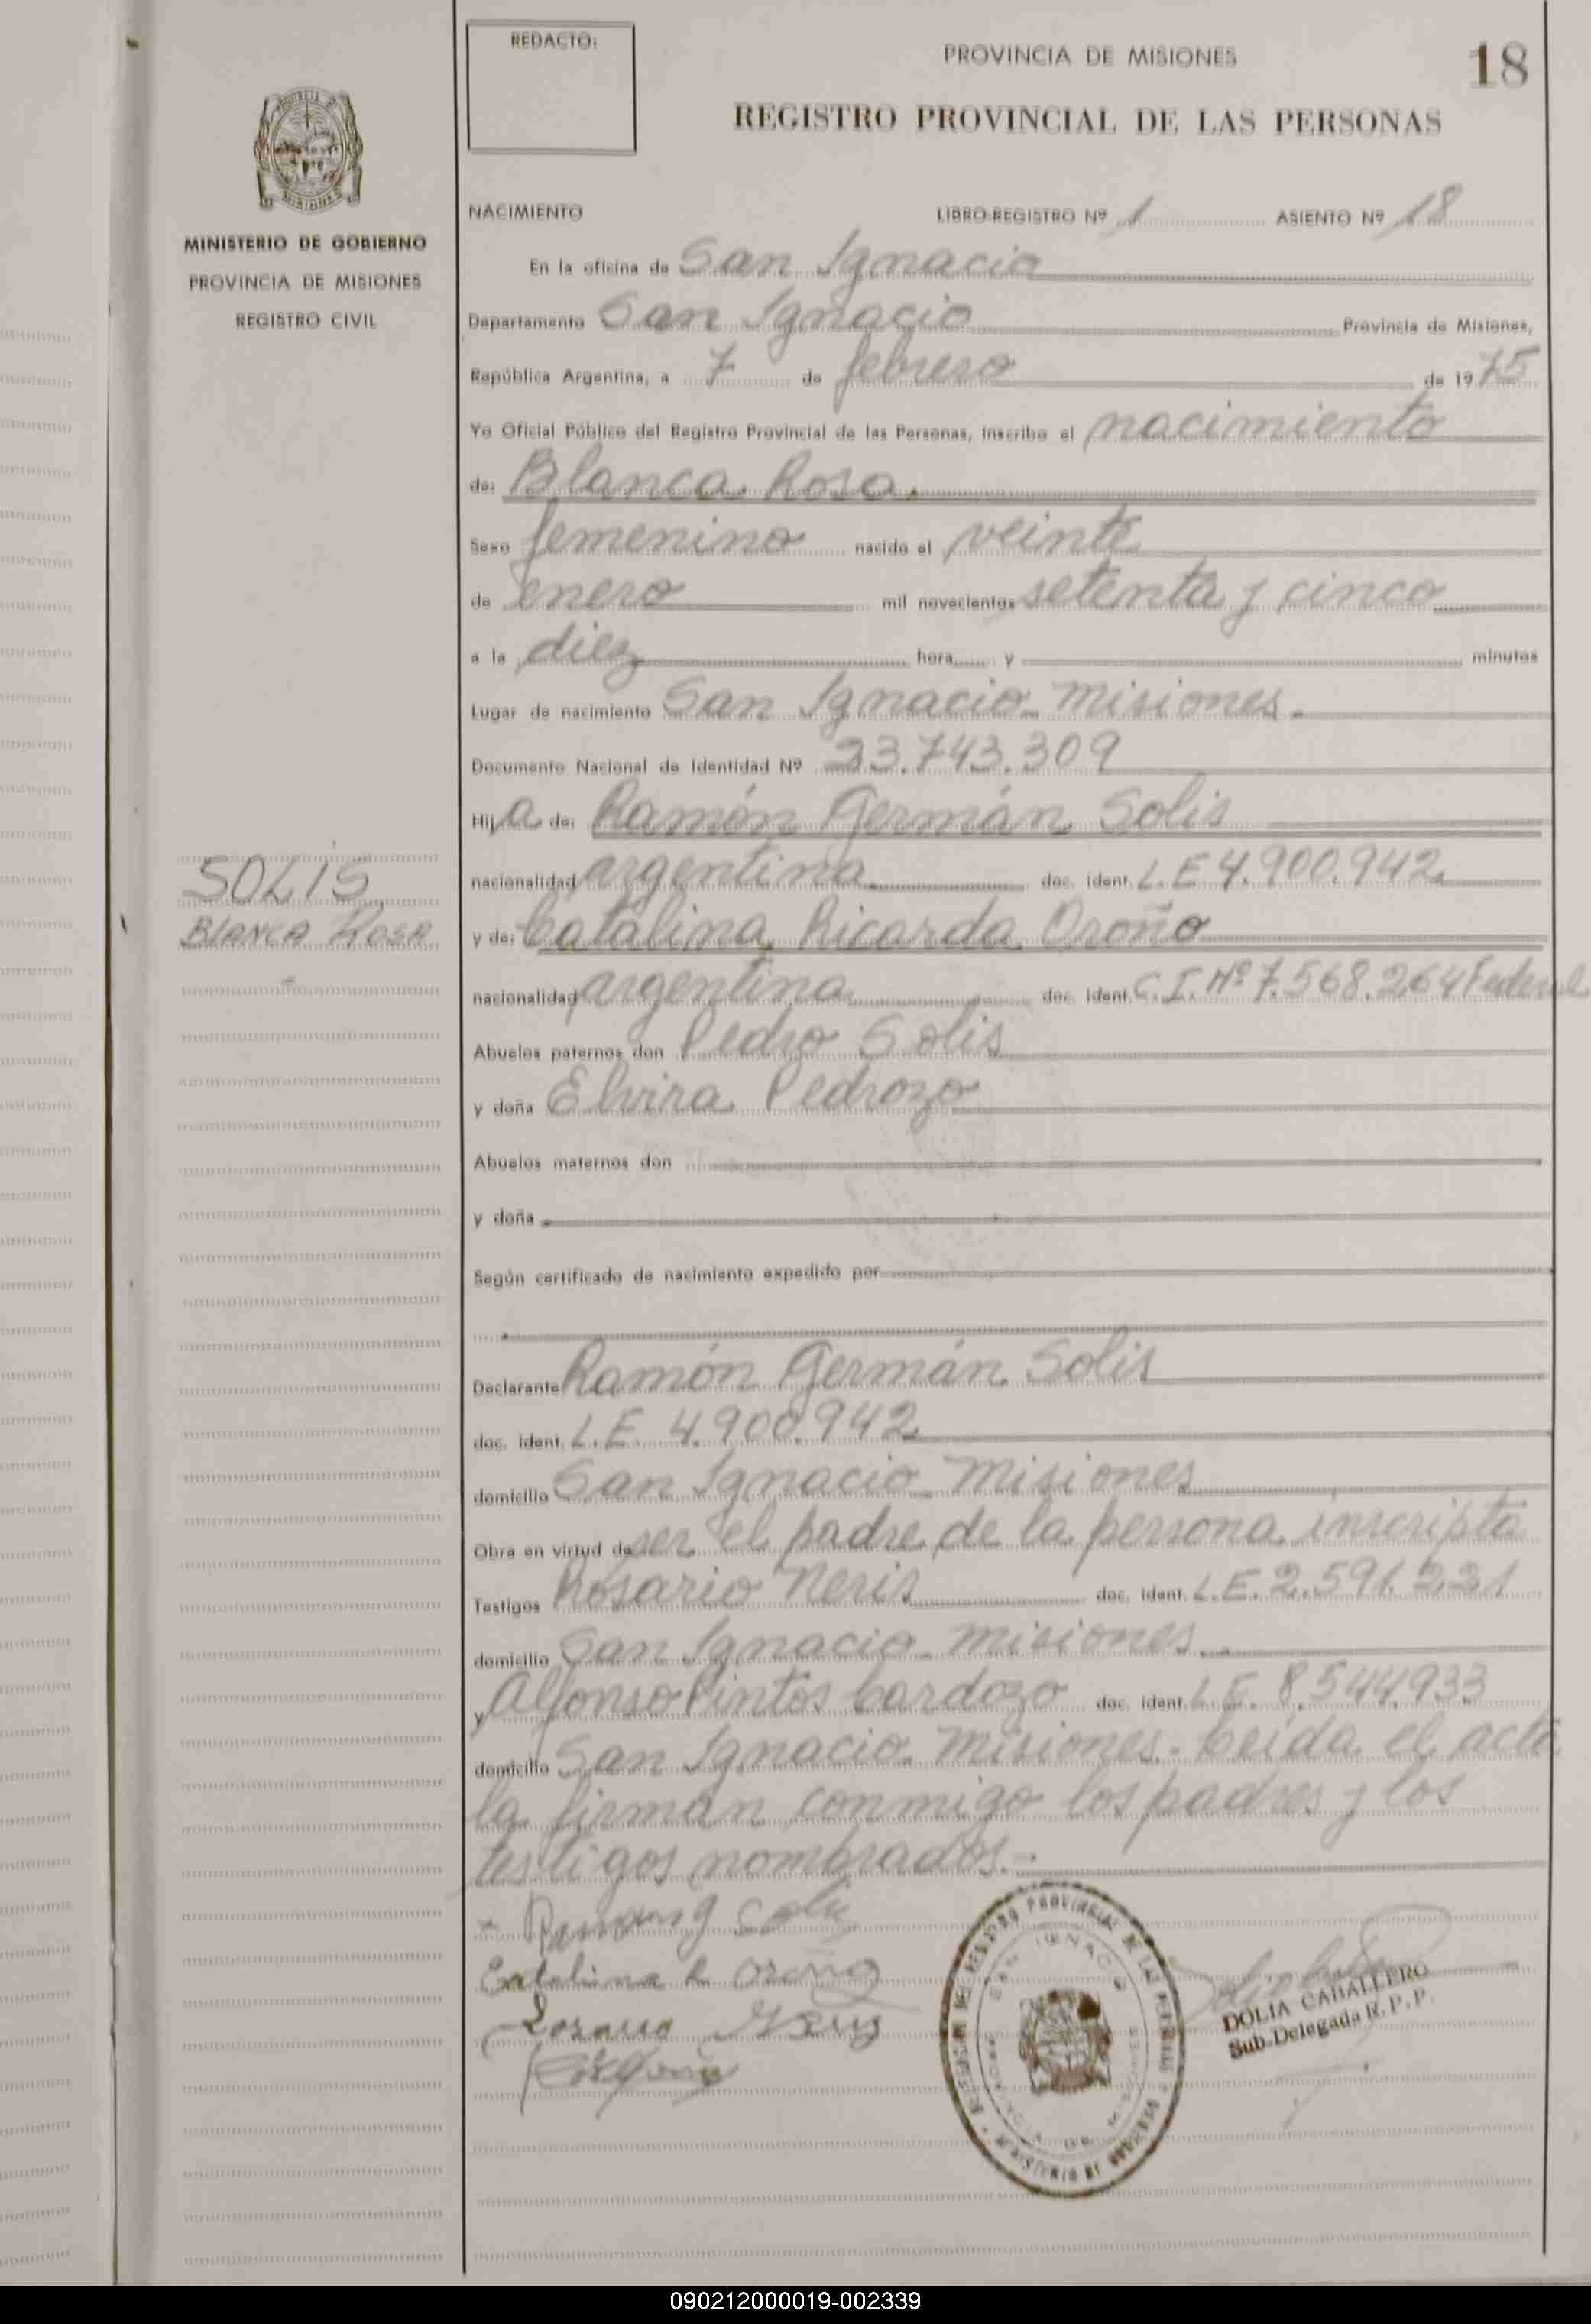 REDACTO:
PROVINCIA DE MISIONES
18
REGISTRO PROVINCIAL DE LAS PERSONAS
MINISTERIO DE GOBIERNO
PROVINCIA DE MISIONES
REGISTRO CIVIL
NACIMIENTO LIBRO-REGISTRO Nº 1 ASIENTO Nº 18
En la oficina de San Ignacio
Departamento San Ignacio Provincia de Misiones,
República Argentina, a 7 de febrero de 1975
Yo Oficial Público del Registro Provincial de las Personas, inscribo el nacimiento
de: Blanca Rosa.
Sexo femenino nacido el veinte
de enero mil novecientos setenta y cinco
a la diez hora y minutos
Lugar de nacimiento San Ignacio - Misiones.-
Documento Nacional de Identidad Nº 23.743.309
Hija de: Ramón Germán Solis
nacionalidad argentina doc. ident. L.E 4.900.942
SOLIS
BLANCA ROSA
y de: Catalina Ricarda Oroño
nacionalidad argentina doc. ident. C.I. Nº 7.568.264 Federal
Abuelos paternos don Pedro Solis
y doña Elvira Pedrozo
Abuelos maternos don
y doña
Según certificado de nacimiento expedido por
Declarante Ramón Germán Solis
doc. ident. L.E. 4.900.942
domicilio San Ignacio - Misiones
Obra en virtud de ser el padre de la persona inscripta
Testigos Rosario Neris doc. ident. L.E. 2.591.221
domicilio San Ignacio - misiones
y Alfonso Pintos Cardozo doc. ident. L.E. 8.544.933
domicilio San Ignacio - Misiones.- Leída el acta
la firman conmigo los padres y los
testigos nombrados.-
Ramon G Solis
Catalina R Oroño
Rosario Neris
SAN IGNACIO
MINISTERIO DE GOBIERNO
DOLIA CABALLERO
Sub-Delegada R.P.P.
090212000019-002339